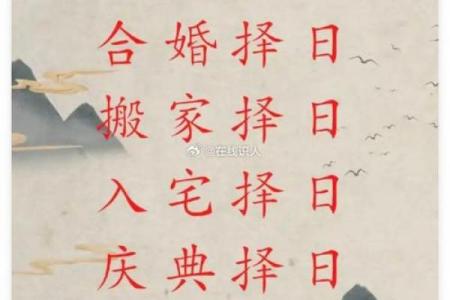 合婚择日
搬家择日
@在线识人
入宅择日
庆典择日